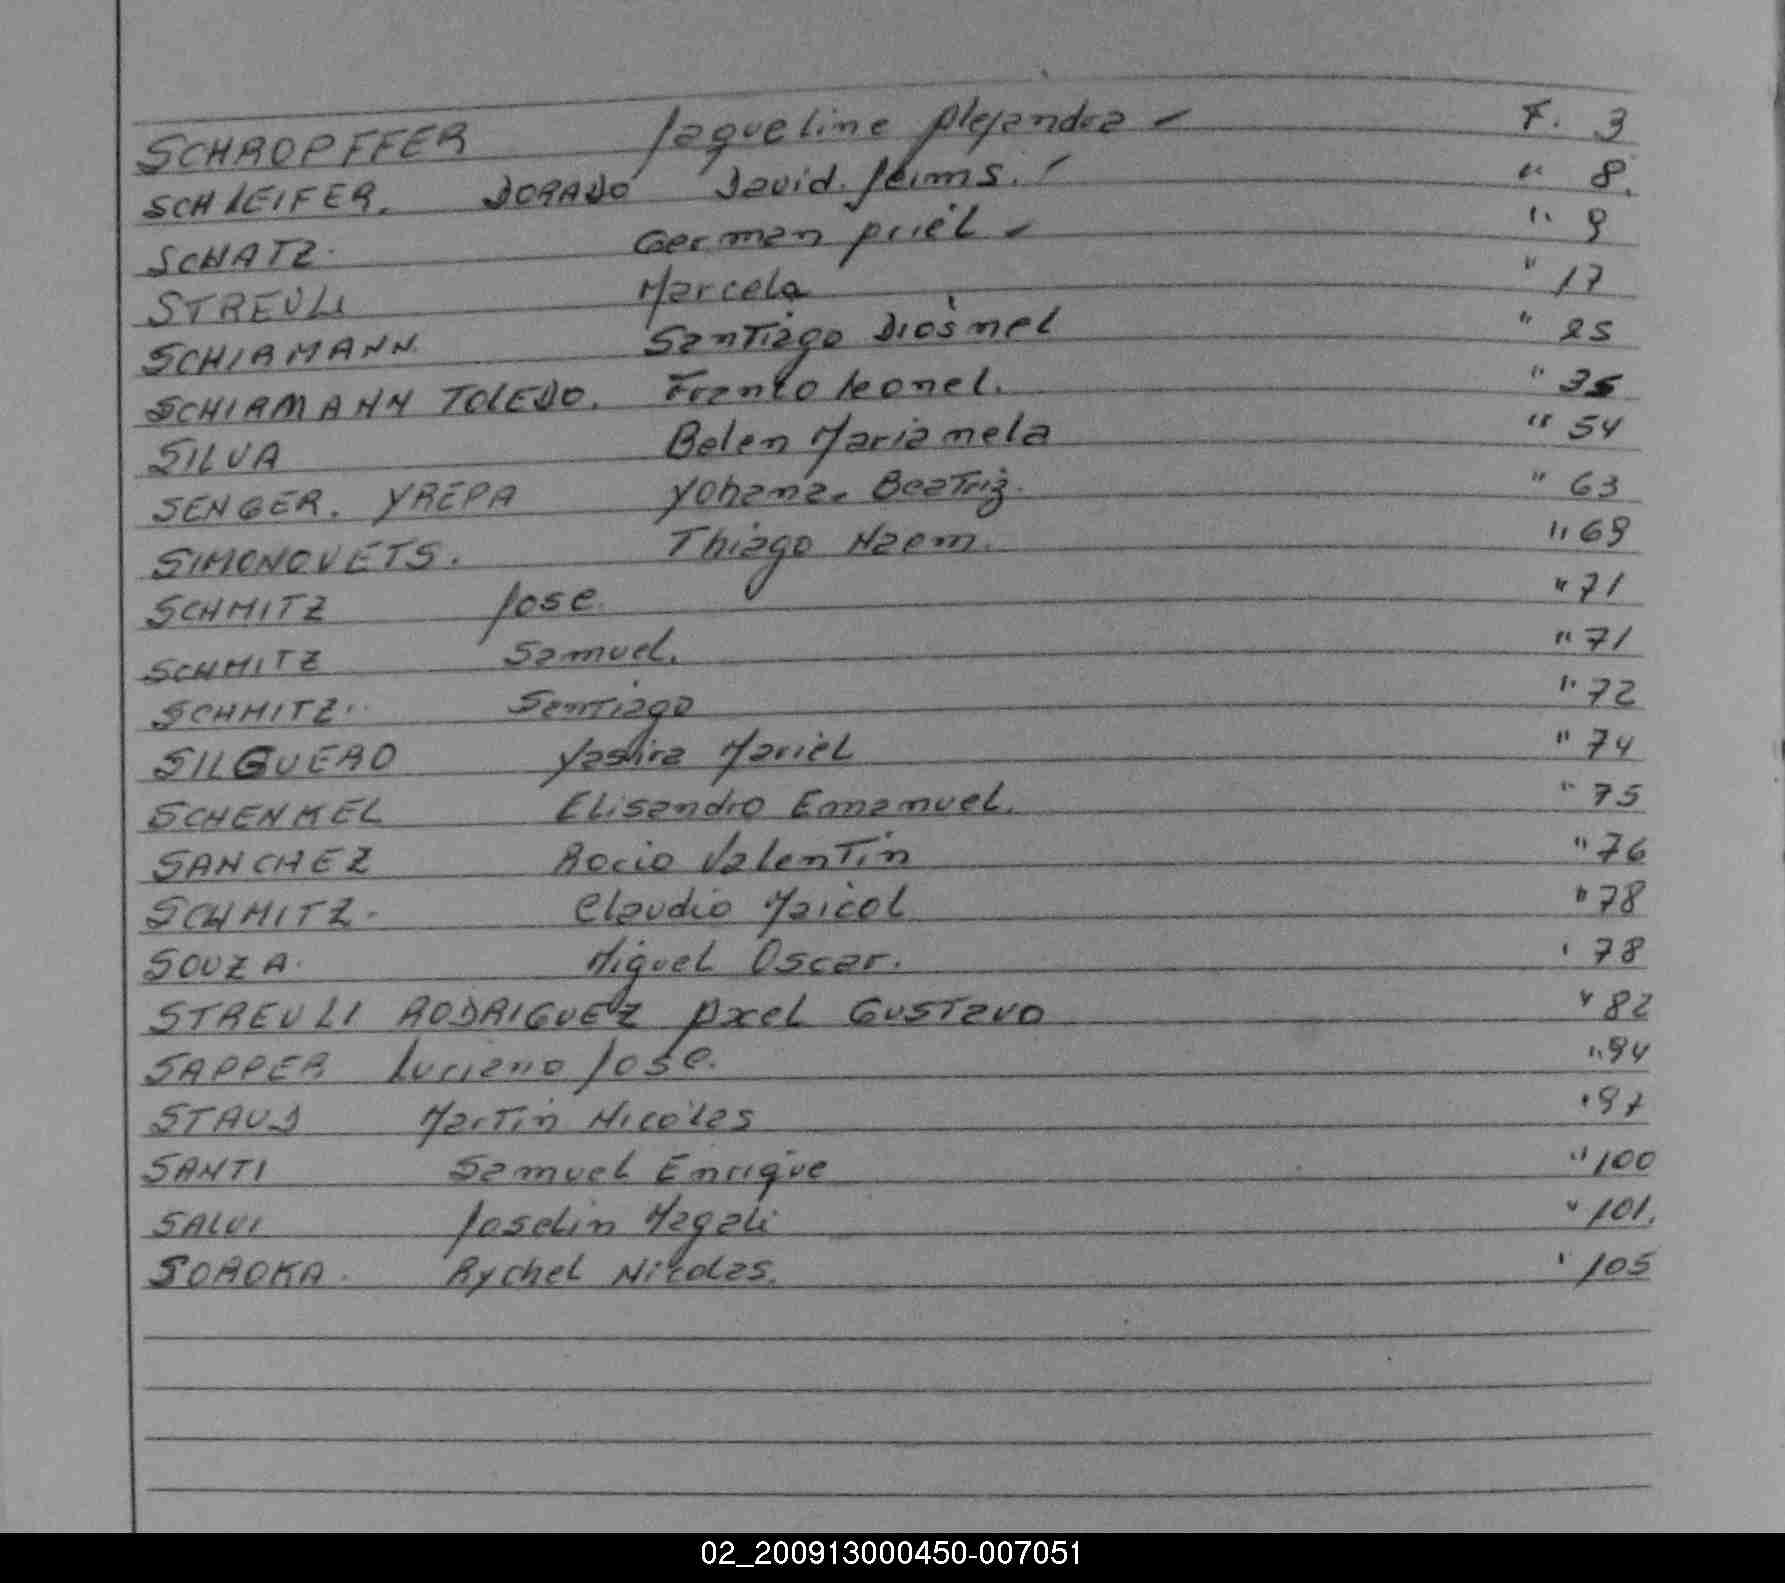 SCHROPFFER Jaqueline Alejandra - F. 3
SCHLEIFER. DORADO David Jeims. " 8.
SCHATZ. German Ariel - " 9
STREULI Marcela " 17
SCHIRMANN Santiago Diosnel " 25
SCHIRMANN TOLEDO. Franko Leonel. " 35
SILVA Belen Marianela " 54
SENGER. YREPA Yohana. Beatriz. " 63
SIMONOVETS. Thiago Naem. " 69
SCHMITZ Jose. " 71
SCHMITZ Samuel. " 71
SCHMITZ.. Santiago " 72
SILGUERO Yashira Mariel " 74
SCHENKEL Elisandro Emanuel. " 75
SANCHEZ Rocio Valentin " 76
SCHMITZ. Claudio Maicol " 78
SOUZA. Miguel Oscar. " 78
STREULI RODRIGUEZ Axel GUSTavo " 82
SAPPER Luciano Jose. " 94
STAUD Martin Nicolas " 97
SANTI Samuel Enrique " 100
SALVI Joselin Magali " 101.
SOROKA. Rychel Nicolas. " 105
02_200913000450-007051